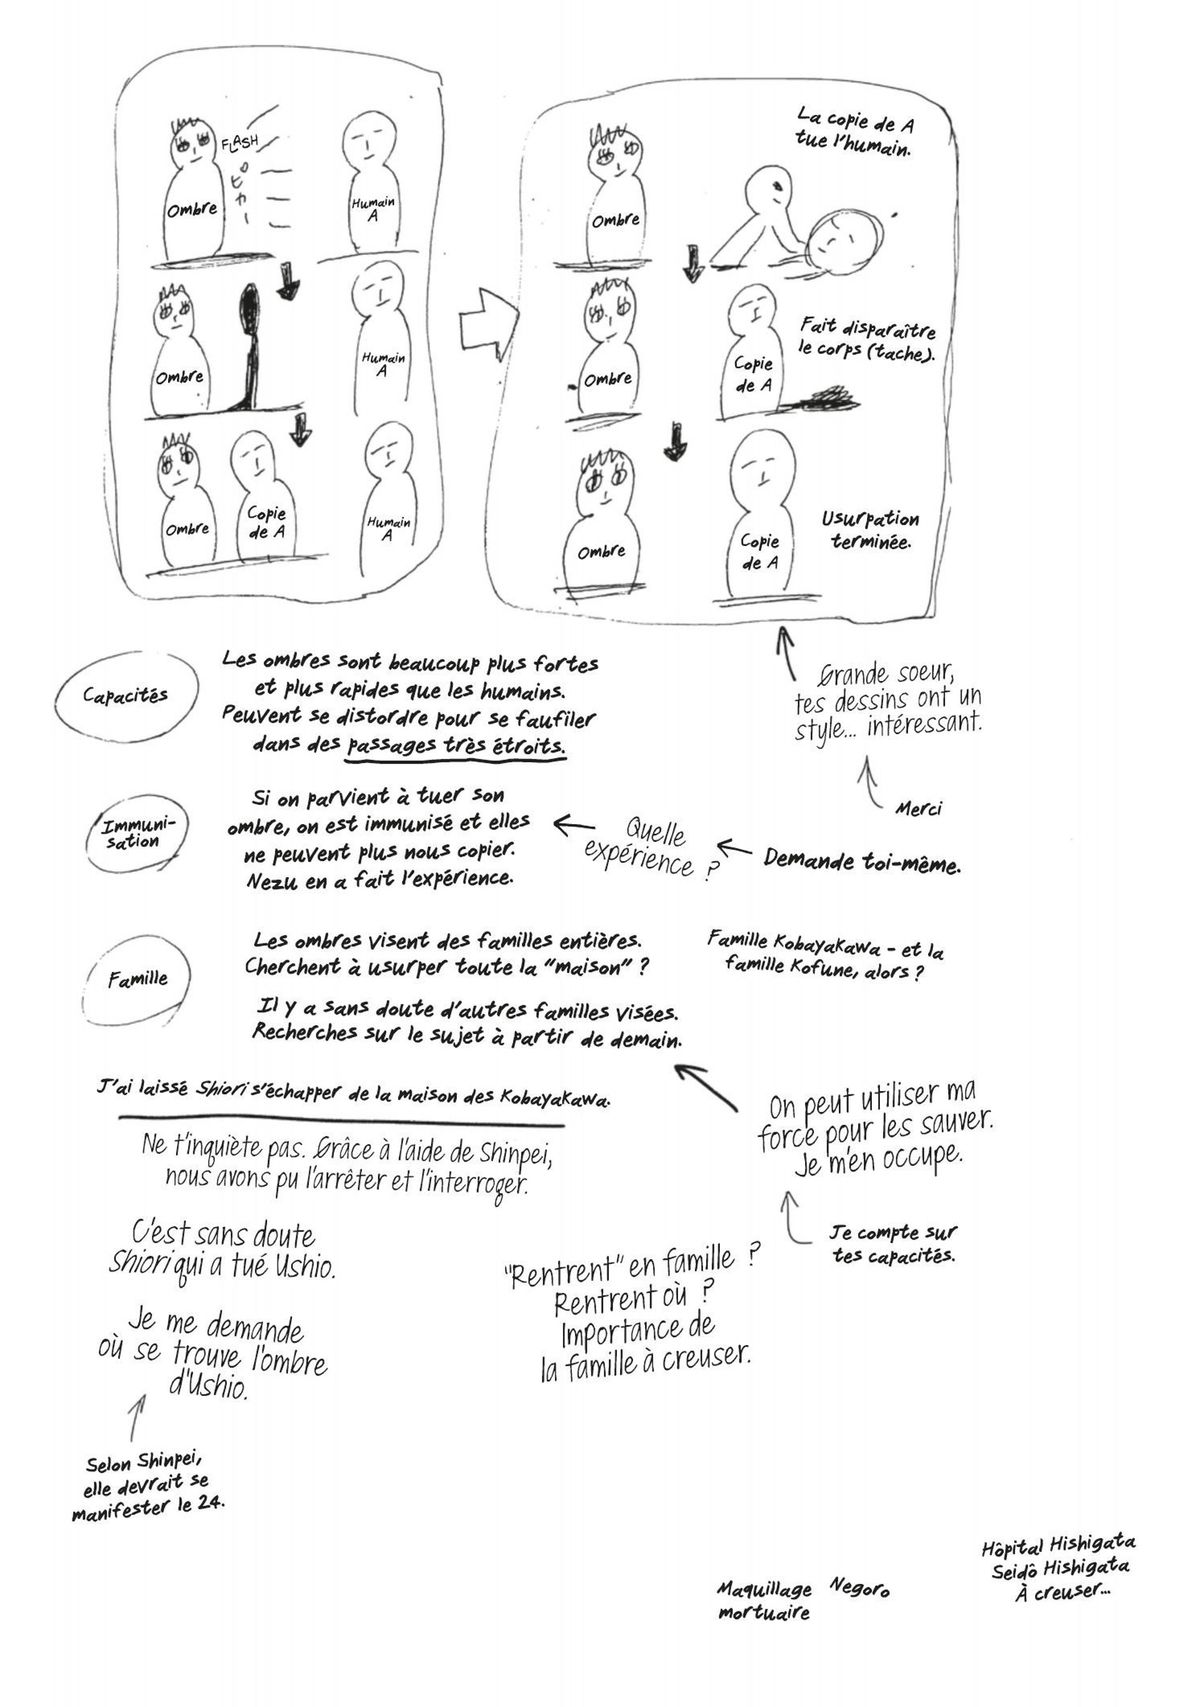 FLASH
ピカー
Ombre
Humain
A
Ombre
Humain
A
Ombre
Copie
de A
Humain
A
La copie de A
tue l'humain.
Ombre
Fait disparaître
le corps (tache).
Ombre
Copie
de A
Usurpation
terminée.
Ombre
Copie
de A
Grande soeur,
tes dessins ont un
style... intéressant.
Merci
Capacités
Les ombres sont beaucoup plus fortes
et plus rapides que les humains.
Peuvent se distordre pour se faufiler
dans des passages très étroits.
Immuni-
sation
Si on parvient à tuer son
ombre, on est immunisé et elles
ne peuvent plus nous copier.
Nezu en a fait l'expérience.
Quelle
expérience ?
Demande toi-même.
Famille
Les ombres visent des familles entières.
Cherchent à usurper toute la "maison" ?
Famille Kobayakawa - et la
famille Kofune, alors ?
Il y a sans doute d'autres familles visées.
Recherches sur le sujet à partir de demain.
On peut utiliser ma
force pour les sauver.
Je m'en occupe.
Je compte sur
tes capacités.
J'ai laissé Shiori s'échapper de la maison des Kobayakawa.
Ne t'inquiète pas. Grâce à l'aide de Shinpei,
nous avons pu l'arrêter et l'interroger.
C'est sans doute
Shiori qui a tué Ushio.
Je me demande
où se trouve l'ombre
d'Ushio.
Selon Shinpei,
elle devrait se
manifester le 24.
"Rentrent" en famille ?
Rentrent où ?
Importance de
la famille à creuser.
Maquillage
mortuaire
Negoro
Hôpital Hishigata
Seidô Hishigata
À creuser...